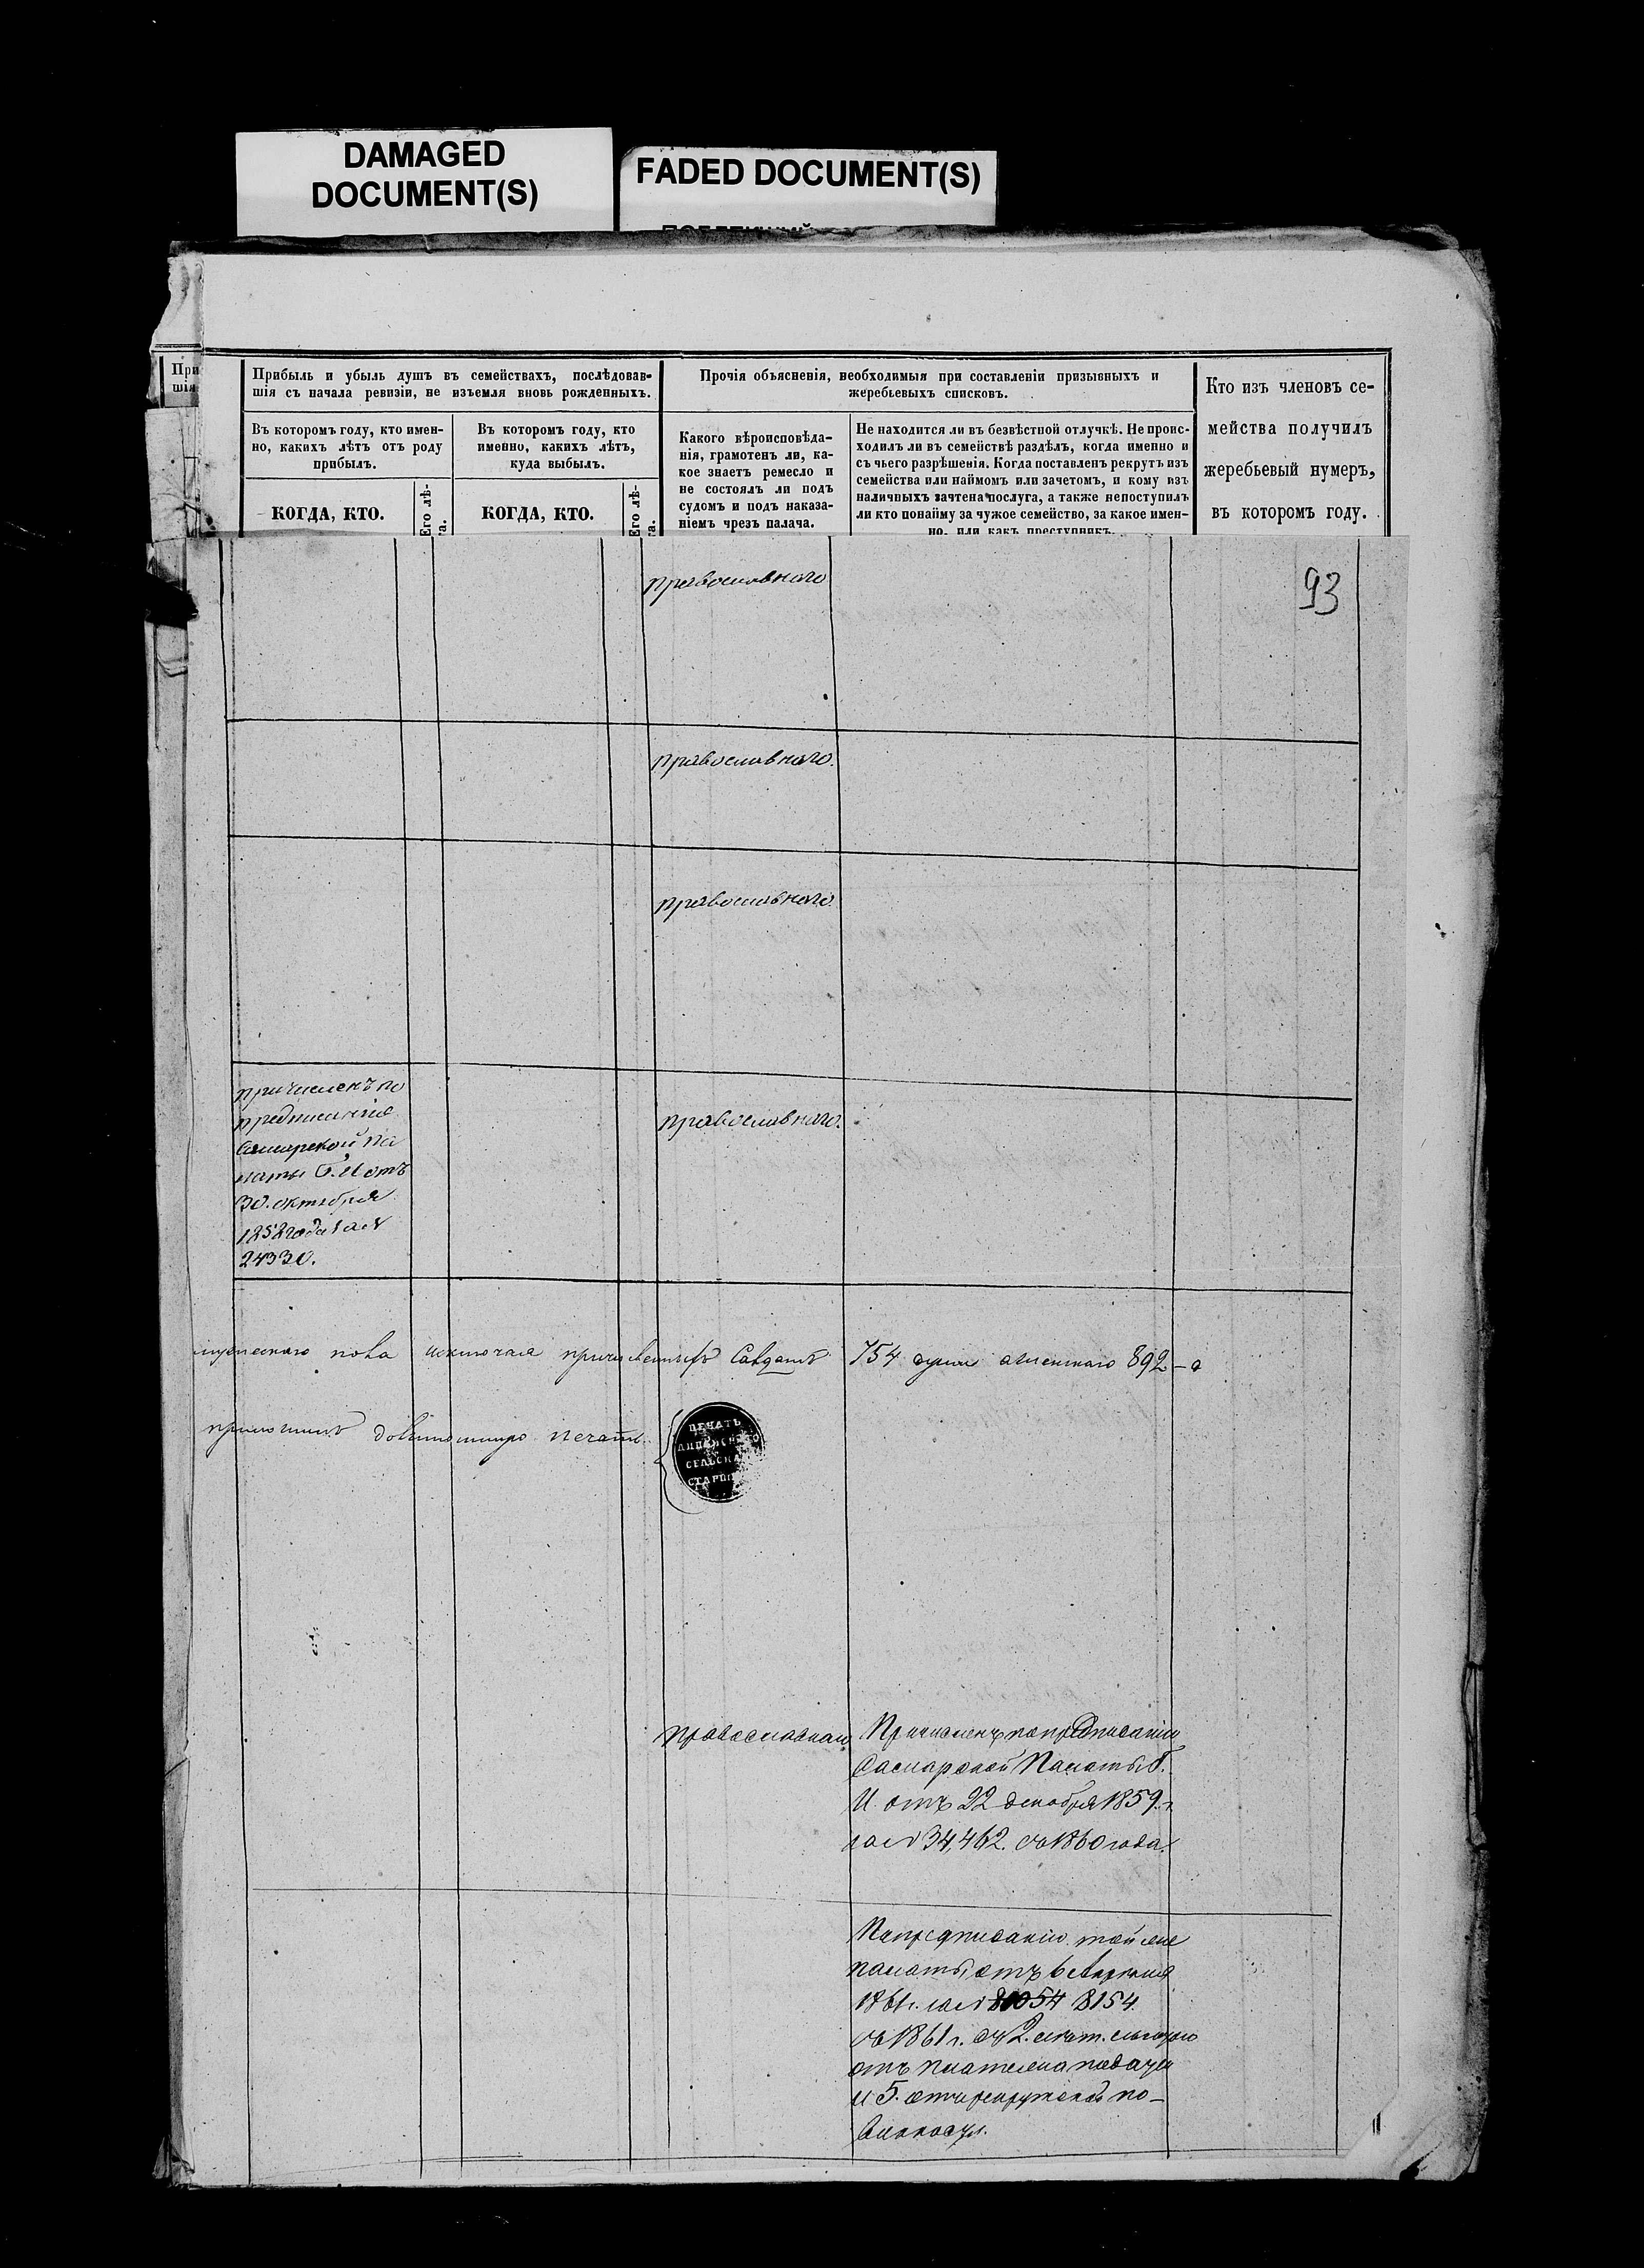 DAMAGED
DOCUMENT(S)
FADED DOCUMENT(S)
При
шія
Прибыль и убыль душъ въ семействахъ, послѣдовав-
шія съ начала ревизіи, не изъемля вновь рожденныхъ.
Въ которомъ году, кто имен-
но, какихъ лѣтъ отъ роду
прибылъ.
КОГДА, КТО.
Его лѣ-
та.
Въ которомъ году, кто
именно, какихъ лѣтъ,
куда выбылъ.
КОГДА, КТО.
Его лѣ-
та.
Прочія объясненія, необходимыя при составленіи призывныхъ и
жеребьевыхъ списковъ.
Какого вѣроисповѣда-
нія, грамотенъ ли, ка-
кое знаетъ ремесло и
не состоялъ ли подъ
судомъ и подъ наказа-
ніемъ чрезъ палача.
Не находится ли въ безвѣстной отлучкѣ. Не проис-
ходилъ ли въ семействѣ раздѣлъ, когда именно и
съ чьего разрѣшенія. Когда поставленъ рекрутъ изъ
семейства или наймомъ или зачетомъ, и кому изъ
наличныхъ зачтена послуга, а также непоступилъ
ли кто понайму за чужое семейство, за какое имен-
но, или какъ преступникъ.
Кто изъ членовъ се-
мейства получилъ
жеребьевый нумеръ,
въ которомъ году.
православнаго
93
православнаго.
православнаго.
причисленъ по
предписанію
Самарской Па
латы Г. И. отъ
30. октября
1852 года за №
24330.
православнаго.
мужескаго пола исключая причисленныхъ Солдатъ 754 души а женскаго 892 - а
приложилъ должностную печать
ПЕЧАТЬ
СЕЛЬСКА
СТАРШ
православнаго
Причисленъ по предписанію
Самарской Палаты Г.
И. отъ 22 декабря 1859. г.
за № 34,462. съ 1860 года.
По предписанію той же
палаты, отъ 6
1861 г. за № 8154
съ 1861 г. съ 2. лѣт. льготою
отъ платежа податей
и 5. отъ рекрутской по-
винности.